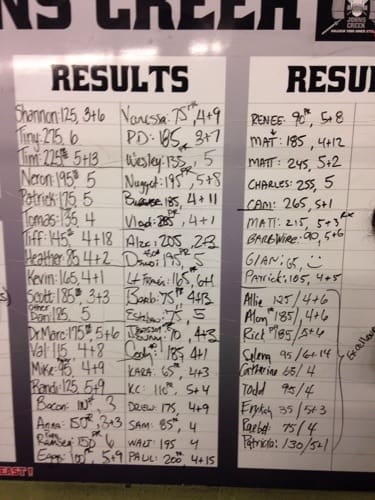 NS CREEK
JOHNS CREEK
RESULTS
Shannon: 125, 3+6
Tiny: 275, 6
Tim: 225, 5+13
Neron: 195, 5
Patrick: 175, 5
Tomas: 135, 4
Tiff: 145, 4+18
Heather: 85, 4+2
Kevin: 165, 4+1
Scott: 185, 3+3
Other Dan: 185, 5
Dr Marc: 175, 5+6
Val: 115, 4+8
Mike: 95, 4+9
Randi: 125, 5+9
Bacon: 3
Anna: 150, 3+3
Ramsen: 150, 6
Eggs: 5+9
Vanessa: 75 PR, 4+9
PD: 185, 3+7
Wesley: 135, 5
Nugget: 195 PR, 5+8
185, 4+11
Vlad: 4+1
Alex: 205, 2+3
195, 5
165, 6+1
Barb: 75, 4+3
Esteban: 5
70, 4+3
185, 4+1
KARA: 65, 4+3
KC: 110, 5+4
DREW: 175, 4+9
SAM: 85, 4
WALT: 195, 4
PAUL: 200, 4+15
RESU
RENEE: 90 PR, 5+8
MAT: 185, 4+12
MATT: 245, 5+2
CHARLES: 255, 5
CAM: 265, 5+1
MATT: 215, 5+3 Rx
BARBWIRE: 90, 5+6
GIAN: 65, ☺
PATRICK: 185, 4+5
Allie 125/4+6
Alan 185/4+6
Rick 185/5+6
95/6+14
Catharine 65/4
Todd 95/4
35/5+3
Rachel 75/4
Patricia: 130/5+1
EAST!